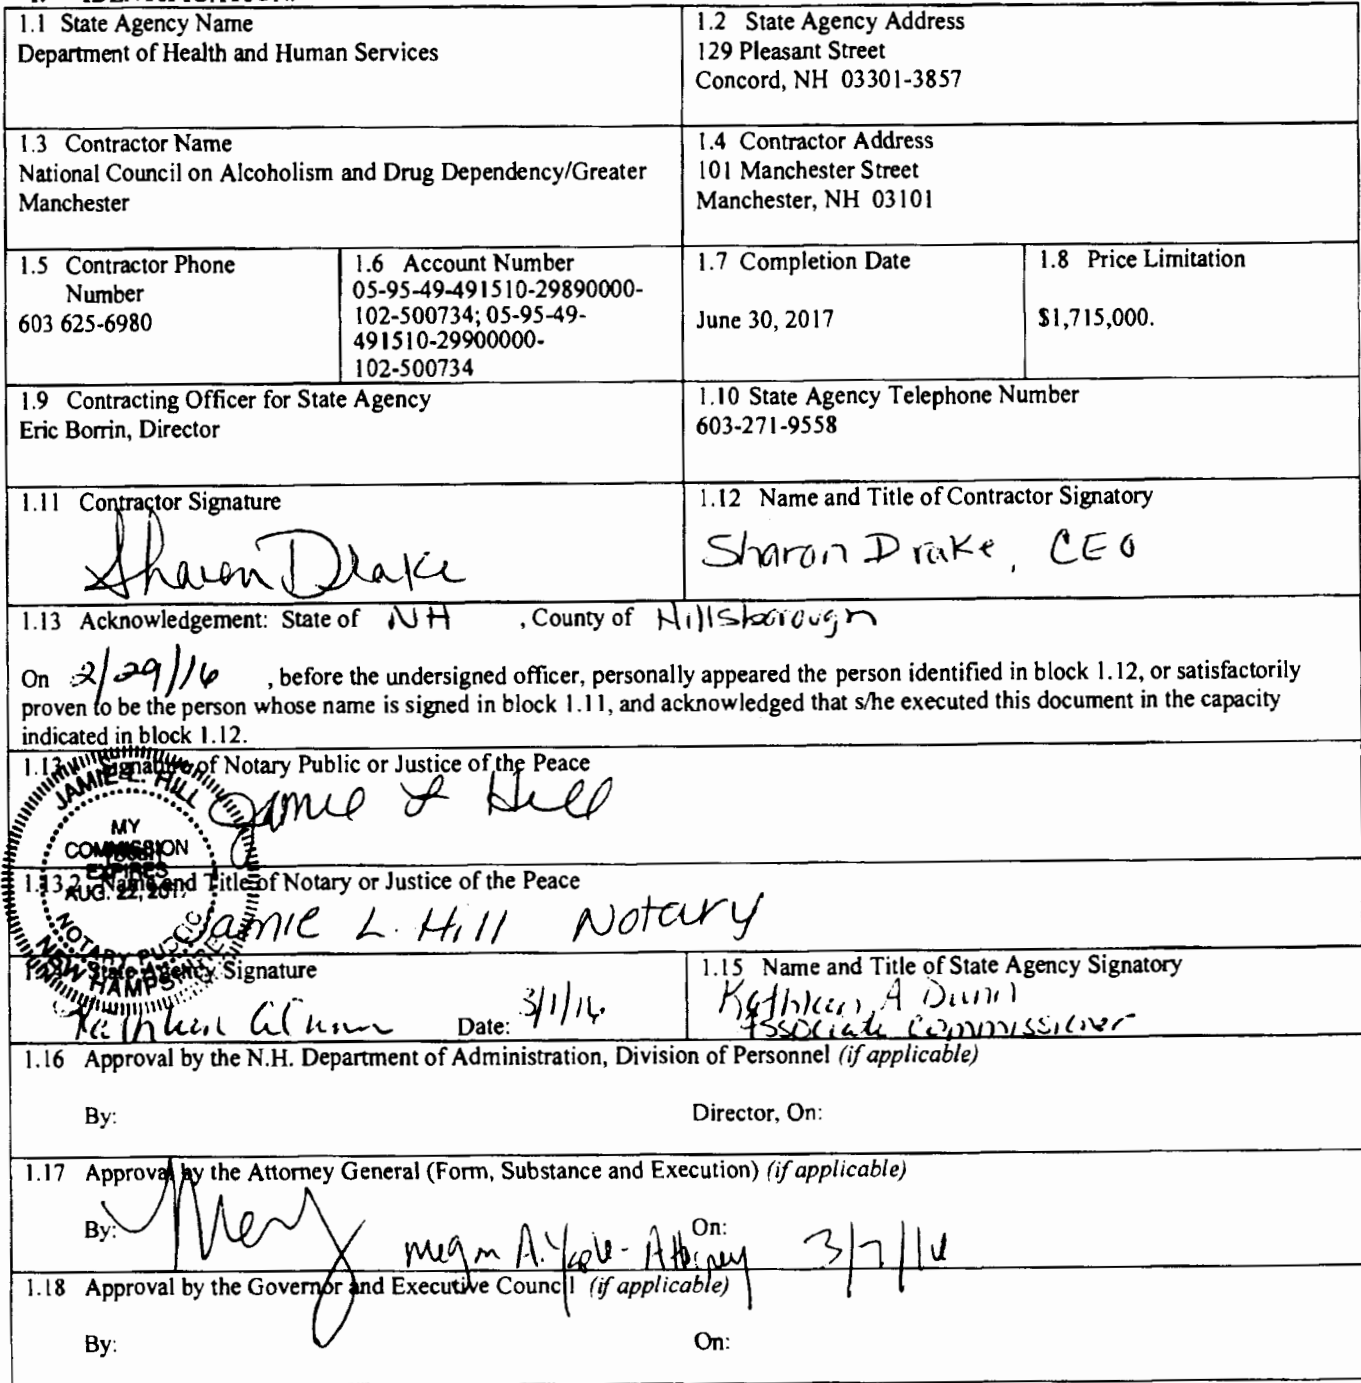 1.1 State Agency Name
Department of Health and Human Services
1.2 State Agency Address
129 Pleasant Street
Concord, NH 03301-3857
1.3 Contractor Name
National Council on Alcoholism and Drug Dependency/Greater
Manchester
1.4 Contractor Address
101 Manchester Street
Manchester, NH 03101
1.5 Contractor Phone
Number
603 625-6980
1.6 Account Number
05-95-49-491510-29890000-
102-500734; 05-95-49-
491510-29900000-
102-500734
1.7 Completion Date
June 30, 2017
1.8 Price Limitation
$1,715,000.
1.9 Contracting Officer for State Agency
Eric Borrin, Director
1.10 State Agency Telephone Number
603-271-9558
1.11 Contractor Signature
Sharon Drake
1.12 Name and Title of Contractor Signatory
Sharon Drake, CEO
1.13 Acknowledgement: State of NH , County of Hillsborough
On 2/29/16 , before the undersigned officer, personally appeared the person identified in block 1.12, or satisfactorily
proven to be the person whose name is signed in block 1.11, and acknowledged that s/he executed this document in the capacity
indicated in block 1.12.
Signature of Notary Public or Justice of the Peace
Jamie L Hill
JAMIE L. HILL
MY
COMMISSION
EXPIRES
AUG. 22, 2017
NOTARY PUBLIC
NEW HAMPSHIRE
1.13.2 Name and Title of Notary or Justice of the Peace
Jamie L. Hill Notary
State Agency Signature
Kathleen A Dunn Date: 3/1/16
1.15 Name and Title of State Agency Signatory
Kathleen A Dunn
Associate Commissioner
1.16 Approval by the N.H. Department of Administration, Division of Personnel (if applicable)
By: Director, On:
1.17 Approval by the Attorney General (Form, Substance and Execution) (if applicable)
By: Megan A. - Attorney On: 3/7/16
1.18 Approval by the Governor and Executive Council (if applicable)
By: On: